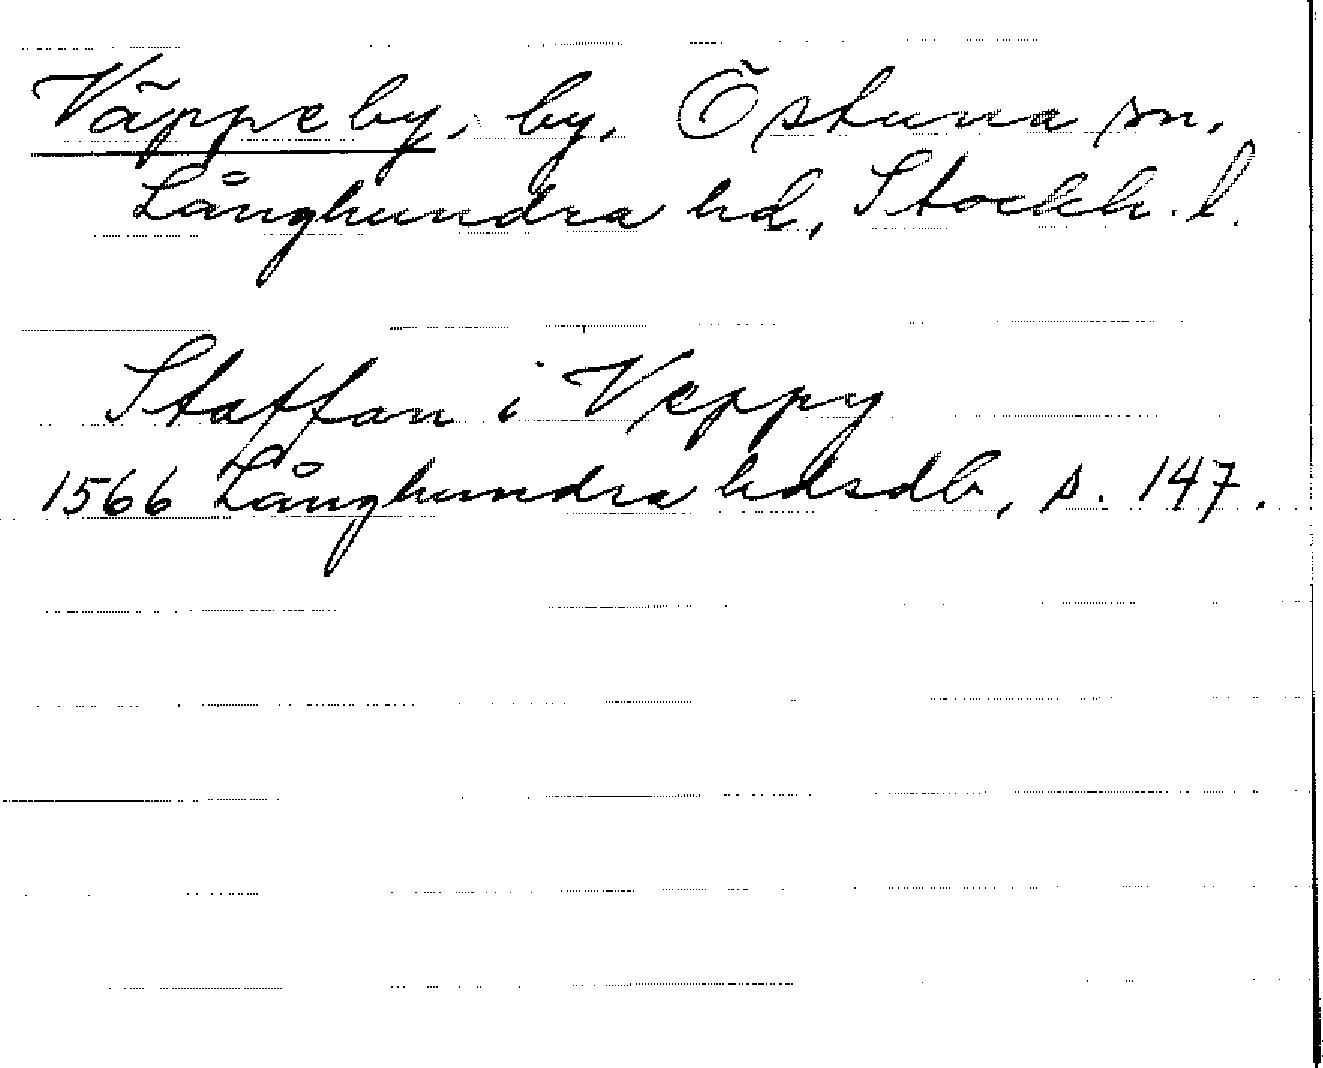 Väppeby, by, Östuna sn.
Långhundra hd, Stockh. l.
Staffan i Veppy
1566 Långhundra hdsdb, s. 147.